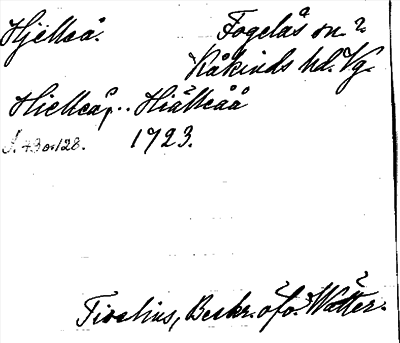 Hjelleå. Fogelås sn.?
Kåkinds hd. Vg.
Hielleå, .. Hiälleåå
s. 43 o. 128. 1723.
Tiselius, Beskr. öfv. Wätter.